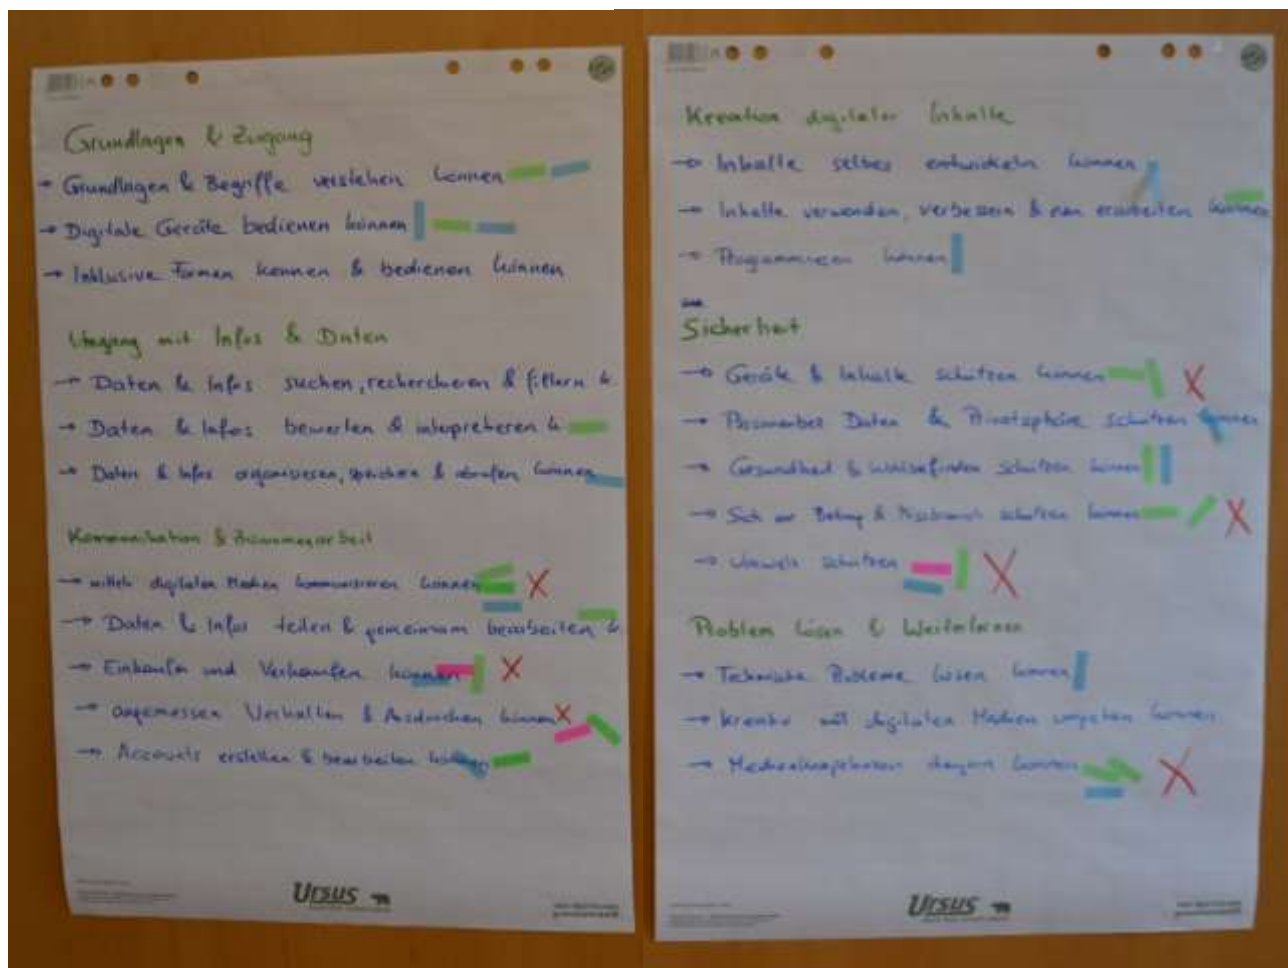 Grundlagen & Zugang
→ Grundlagen & Begriffe verstehen können
→ Digitale Geräte bedienen können
→ Inklusive Formen kennen & bedienen können
Umgang mit Infos & Daten
→ Daten & Infos suchen, recherchieren & filtern k.
→ Daten & Infos bewerten & interpretieren k.
→ Daten & Infos organisieren, speichern & abrufen können
Kommunikation & Zusammenarbeit
→ mittels digitalen Medien kommunizieren können
→ Daten & Infos teilen & gemeinsam bearbeiten k.
→ Einkaufen und Verkaufen können
→ angemessen Verhalten & Ausdrücken können
→ Accounts erstellen & bearbeiten können
Ursus
Kreation digitaler Inhalte
→ Inhalte selber entwickeln können
→ Inhalte verwenden, verbessern & neu erarbeiten können
→ Programmieren können
Sicherheit
→ Geräte & Inhalte schützen können
→ Daten & Privatsphäre schützen können
→ Gesundheit & Wohlbefinden schützen können
→ Sich vor Betrug & Missbrauch schützen können
→ Umwelt schützen
Problem lösen & Weiterlernen
→ Technische Probleme lösen können
→ kreativ mit digitalen Medien umgehen können
→ können
Ursus